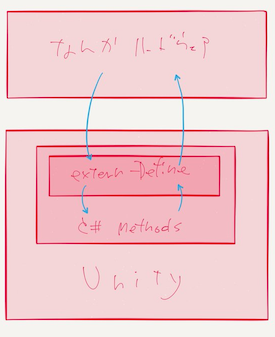 なんか
extern-Define
C# Methods
Unity